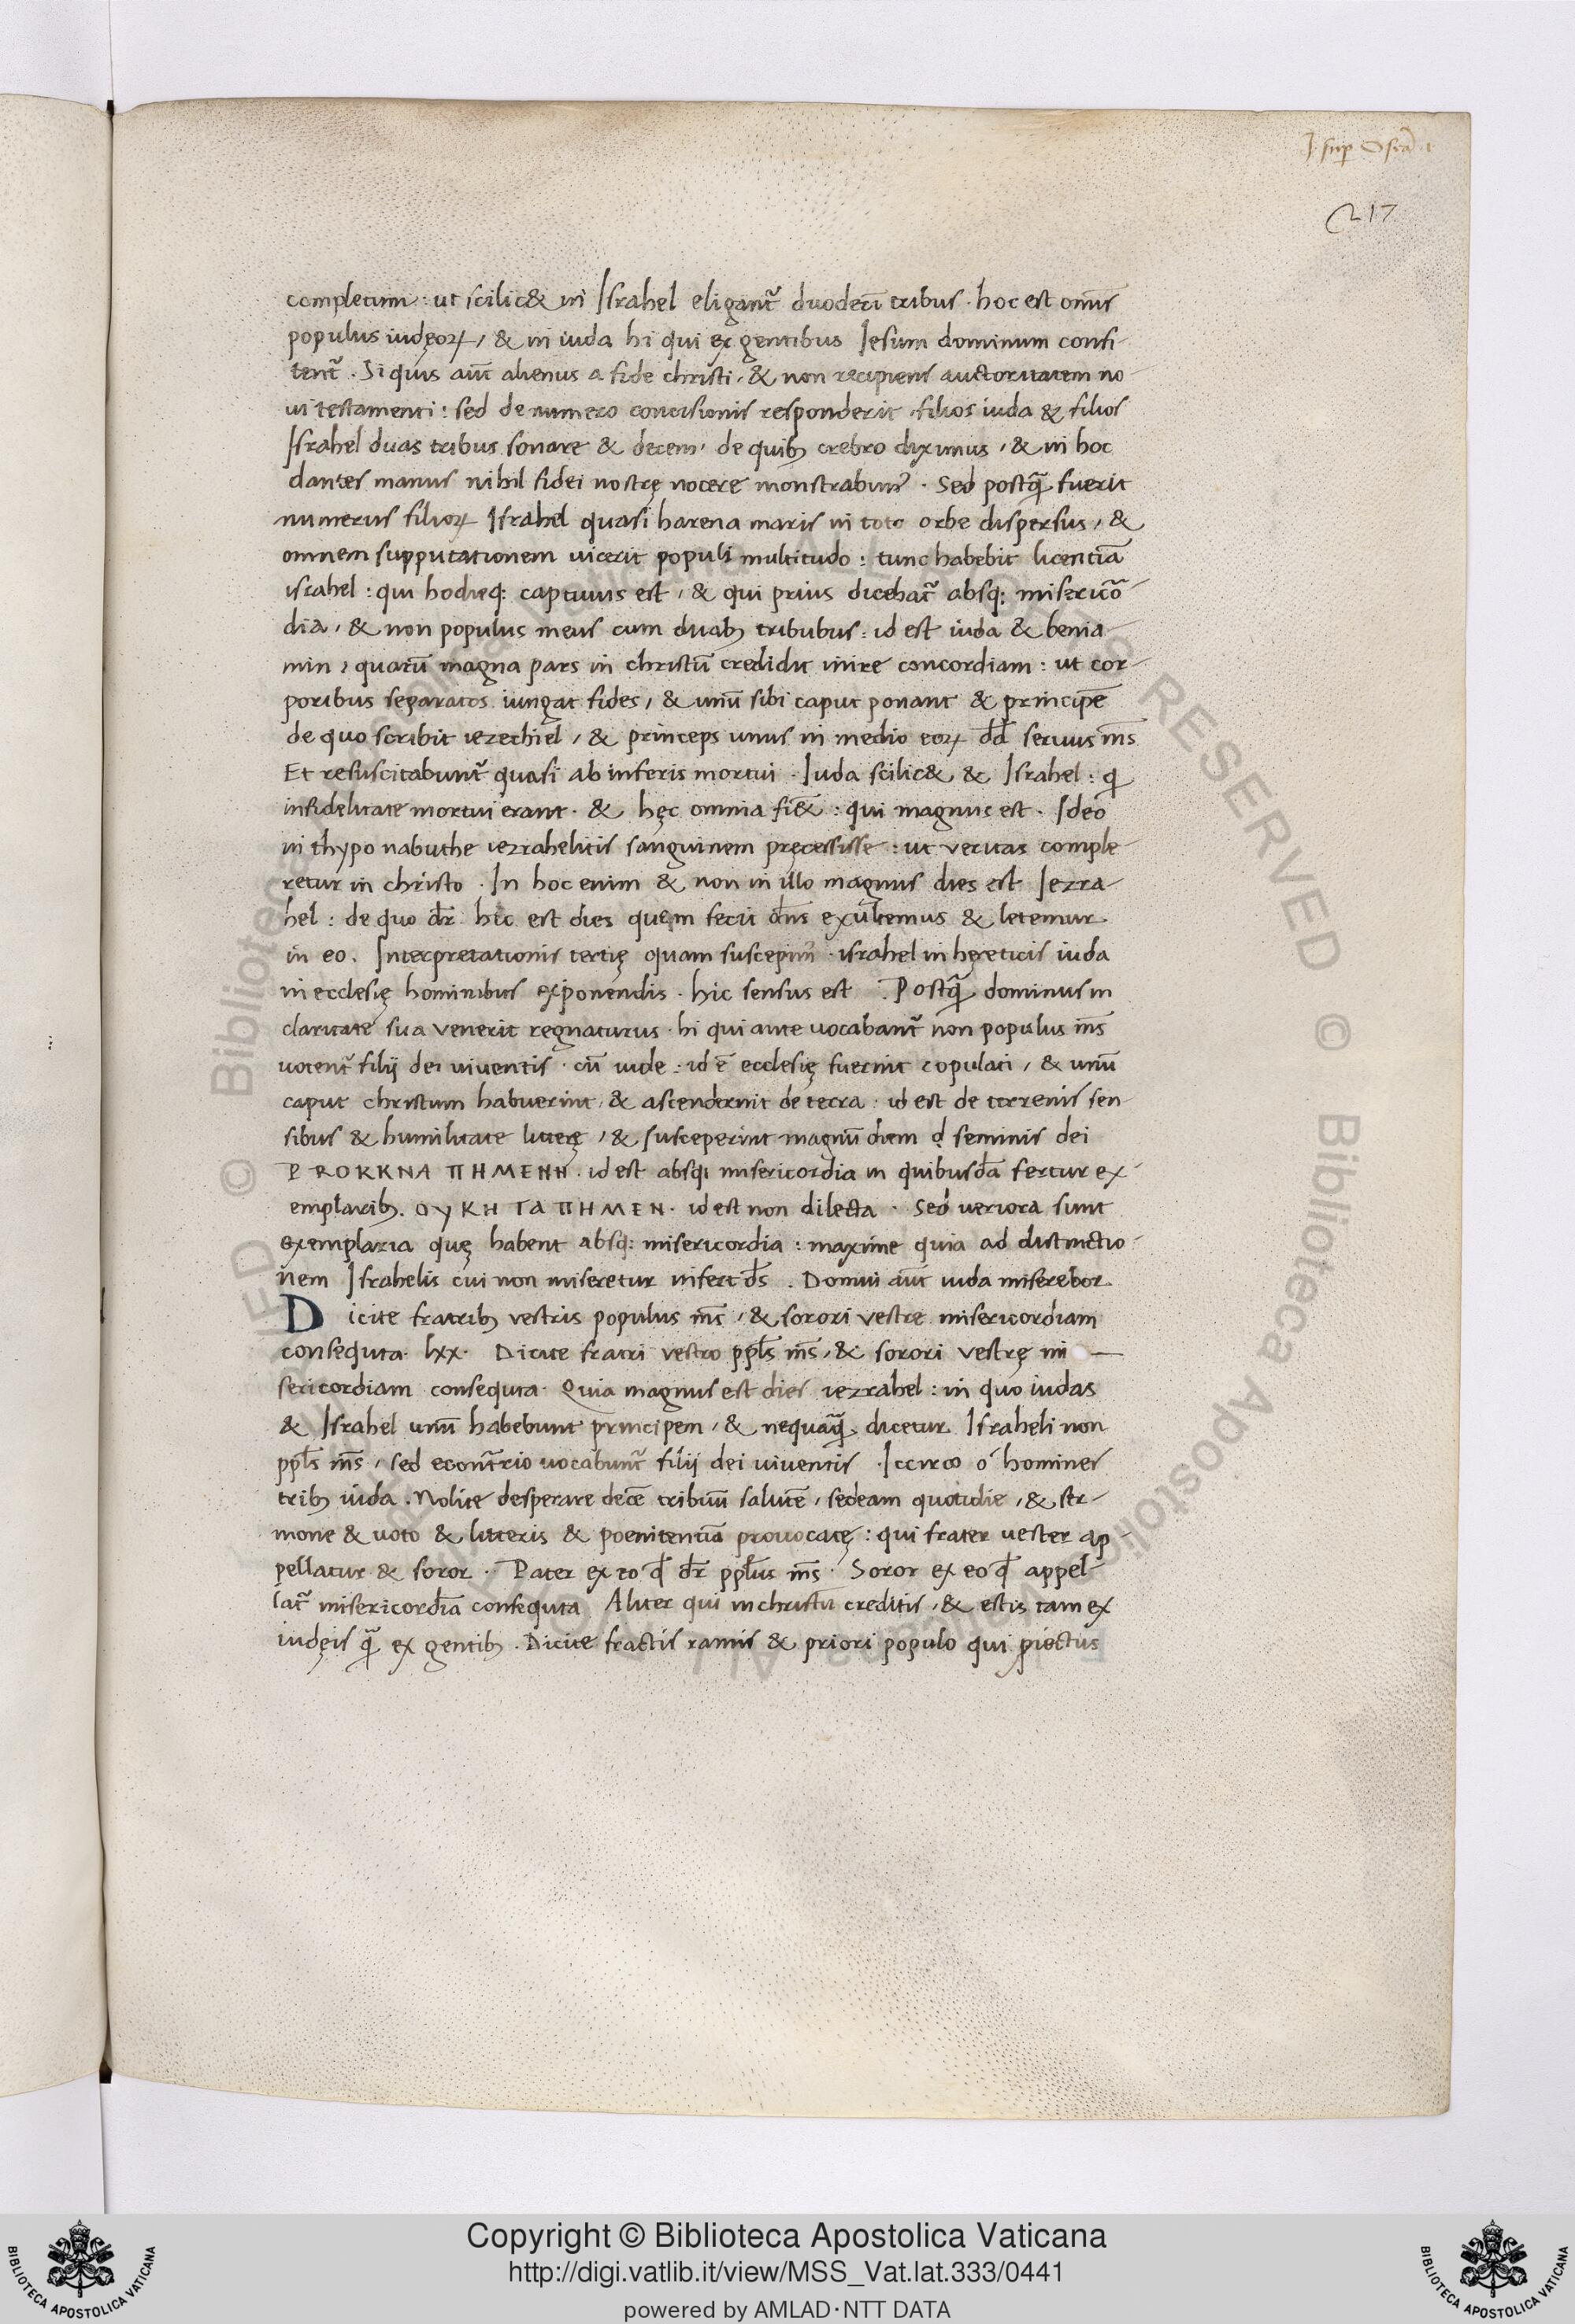 J. sup Oseā 1
217
completum : ut scilic& in Israhel eligant᷑ duodecī tribus . hoc est omīs
populus iudęoꝝ , & in iuda hi qui ex gentibus Iesum dominum confi-
tent᷑ . Si quis aūt alienus a fide christi , & non recipiens auctoritatem no-
ui testamenti : sed de numero concisionis responderit , filios iuda & filios
Israhel duas tribus sonare & decem , de quibꝫ crebro diximus , & in hoc
dantes manus nihil fidei nostrę nocere monstrabunt᷑ . Sed postꝗ̃ fuerit
numerus filioꝝ Israhel quasi harena maris in toto orbe dispersus , &
omnem supputationem uicerit populi multitudo : tunc habebit licentiā
israhel : qui hodieqꝫ captiuus est , & qui prius dicebat᷑ absqꝫ misericō-
dia , & non populus meus cum duabꝫ tribubus : id est iuda & benia-
min , quarū magna pars in christū credidit inire concordiam : ut cor-
poribus separatos iungat fides , & unū sibi caput ponant & principē
de quo scribit iezechiel , & princeps unus in medio eoꝝ dd̄ seruus m̄s
Et resuscitabunt᷑ quasi ab inferis mortui . Iuda scilic& & Israhel : ꝗ
infidelitate mortui erant . & hęc omnia fi& : qui magnus est . Ideo
in thypo nabuthe iezrahelitis sanguinem pręcessisse : ut veritas comple-
retur in christo . In hoc enim & non in illo magnus dies est Iezra-
hel : de quo dr̄ hic est dies quem fecit dn̄s exultemus & letemur
in eo . Interpretationis tertię quam suscepim᷒ . israhel in hęreticis iuda
in ecclesię hominibus exponendis . hic sensus est . Postꝗ̃ dominus in
claritate sua venerit regnaturus . hi qui ante uocabant᷑ non populus m̄s
uocent᷑ filij dei uiuentis . cū iude : id ē ecclesię fuerint copulati , & unū
caput christum habuerint , & ascenderint de terra : id est de terrenis sen-
sibus & humilitate litterę , & susceperint magnū diem ḍ seminis dei
PROKKNA ΠΗΜΕΝΗ . id est absqꝫ misericordia in quibusdā fertur ex-
emplaribꝫ . ΟΥΚΗ ΓΑ ΠΗΜΕΝ . id est non dilecta . Sed veriora sunt
exemplaria quę habent absqꝫ misericordia : maxime quia ad distinctio-
nem Israhelis cui non miseretur infert ds̄ . Domui aūt iuda miserebor
Dicite fratribꝫ vestris populus m̄s , & sorori vestre misericordiam
consequta . lxx . Dicite fratri vestro ppl̄s m̄s , & sorori vestrę mi —
sericordiam consequta . Quia magnus est dies iezrahel : in quo iudas
& Israhel unū habebunt principem , & nequaꝗ̃ dicetur Israheli non
ppl̄s m̄s , sed econt᷑rio uocabunt᷑ filij dei uiuentis . Iccirco ó homines
tribꝫ iuda . Nolite desperare decē tribuū salutē , sedeam quotidie , & ser-
mone & uoto & litteris & poenitentiā prouocatę : qui frater uester ap-
pellatur & soror . Pater ex eo ꝙ dr̄ ppl̄us m̄s . Soror ex eo ꝙ appel-
lat᷑ misericordiā consequta Aliter qui in christū creditis , & estis tam ex
iudęis ꝗ̃ ex gentibꝫ . Dicite fractis ramis & priori populo qui ꝓiectus
Copyright © Biblioteca Apostolica Vaticana
http://digi.vatlib.it/view/MSS_Vat.lat.333/0441
powered by AMLAD·NTT DATA